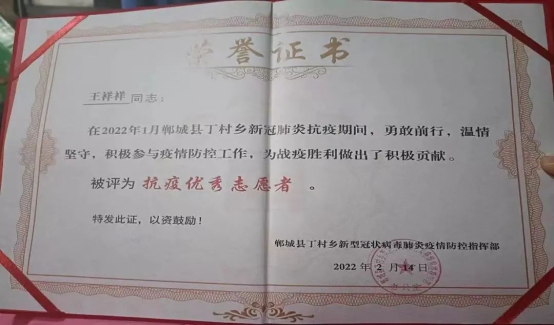 荣誉证书
王祥祥同志：
在2022年1月郸城县丁村乡新冠肺炎抗疫期间，勇敢前行，温情
坚守，积极参与疫情防控工作，为战疫胜利做出了积极贡献。
被评为 抗疫优秀志愿者 。
特发此证，以资鼓励！
郸城县丁村乡新型冠状病毒肺炎疫情防控指挥部
2022 年 2 月 14 日